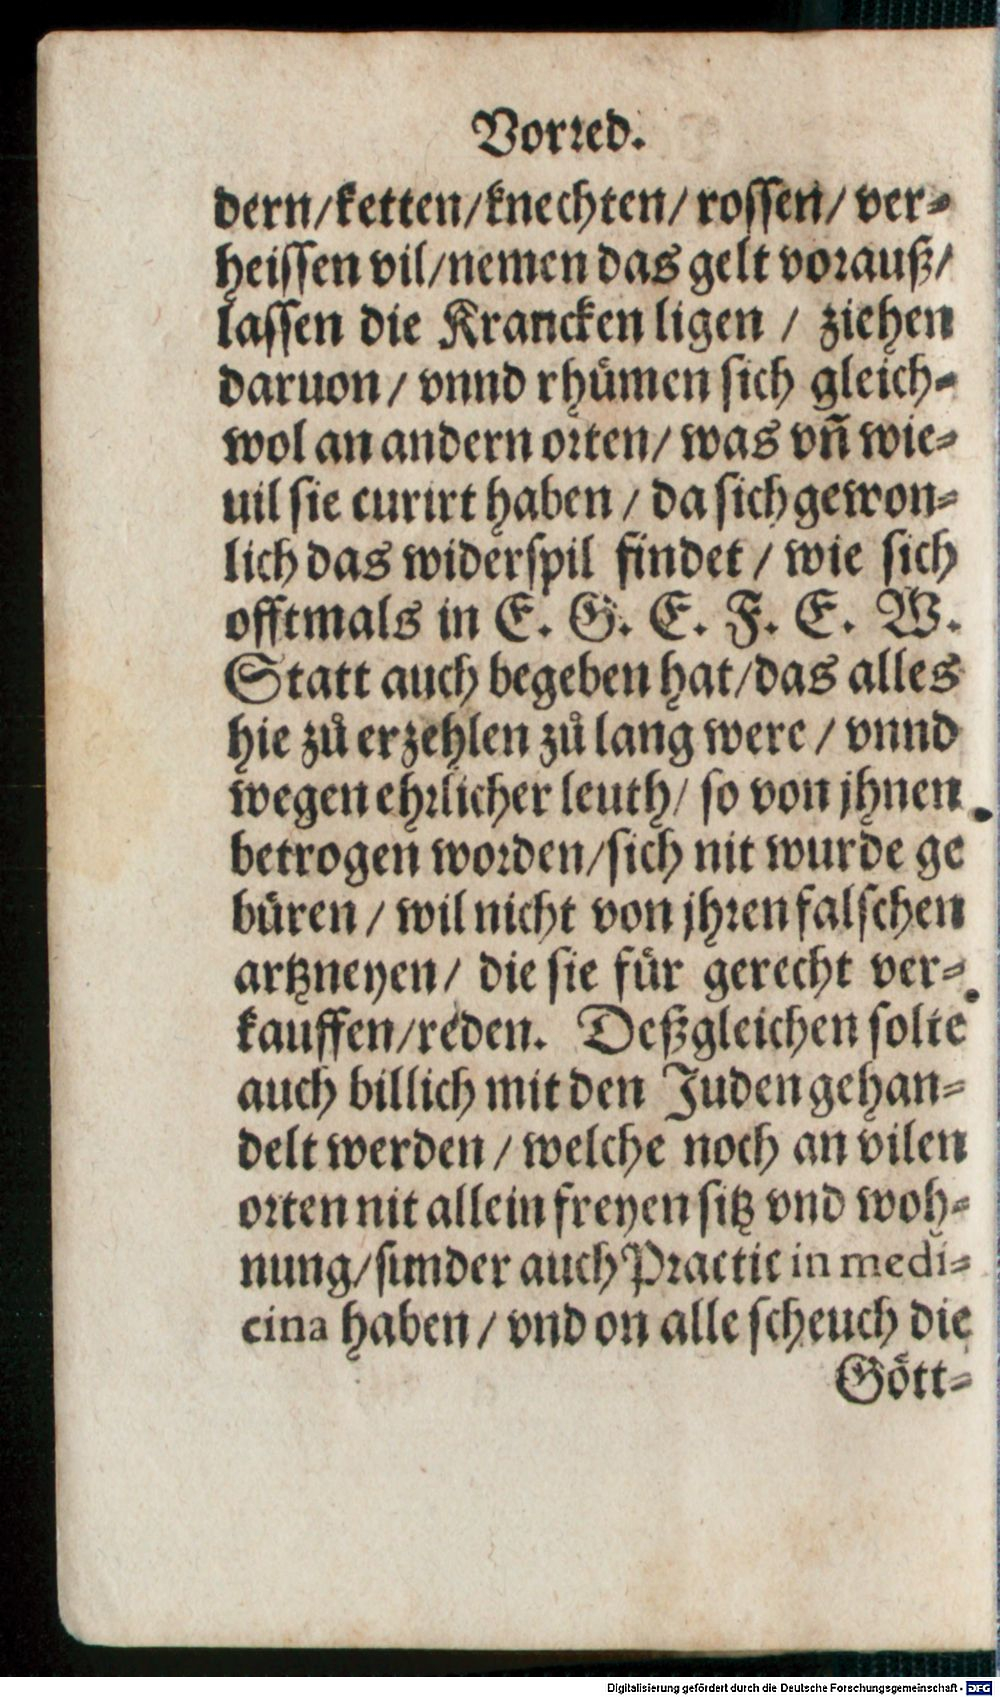 Vorred.
dern/ketten/knechten/ rossen/ ver-
heissen vil/nemen das gelt vorauß/
lassen die Krancken ligen / ziehen
daruon / vnnd rhümen sich gleich-
wol an andern orten/ was vñ wie-
uil sie curirt haben / da sich gewon-
lich das widerspil findet / wie sich
offtmals in E. G. E. F. E. W.
Statt auch begeben hat/das alles
hie zů erzehlen zů lang were / vnnd
wegen ehrlicher leuth/ so von jhnen
betrogen worden/sich nit wurde ge
büren / wil nicht von jhren falschen
artzneyen/ die sie für gerecht ver-
kauffen/reden. Deßgleichen solte
auch billich mit den Juden gehan-
delt werden / welche noch an vilen
orten nit allein freyen sitz vnd woh-
nung/sunder auch Practic in medi-
cina haben / vnd on alle scheuch die
Gött-
Digitalisierung gefördert durch die Deutsche Forschungsgemeinschaft - DFG